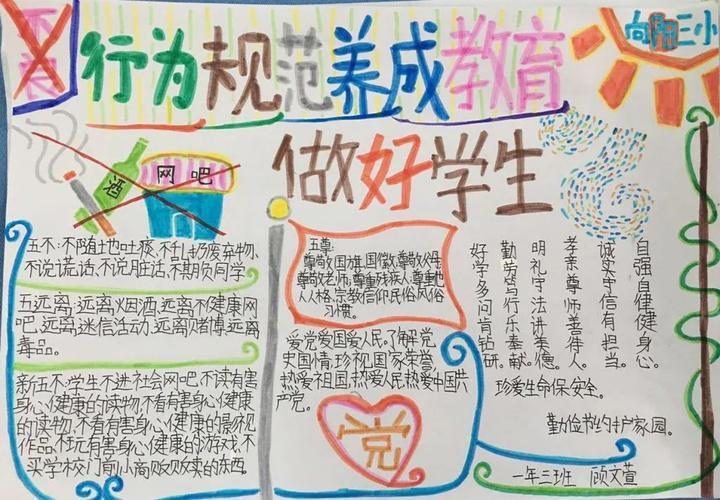 不良
行为规范养成教育
向阳三小
做好学生
酒
网吧
五不:不随地吐痰,不乱扔废弃物,
不说谎话,不说脏话,不欺负同学
五远离:远离烟酒,远离不健康网
吧,远离迷信活动,远离赌博,远离
毒品。
新五不:学生不进社会网吧,不读有害
身心健康的读物,不看有害身心健康
的读物,不看有害身心健康的影视
作品,不玩有害身心健康的游戏,不
买学校门前小商贩贩卖的东西.
五尊:
尊敬国旗,国徽,尊敬父母,
尊敬老师,尊重残疾人,尊重他
人人格,宗教信仰,民俗风俗
习惯。
爱党爱国爱人民,了解党
史国情,珍视国家荣誉,
热爱祖国,热爱人民,热爱中国共
产党。
党
自强自健健身心。
诚实守信有担当。
孝亲尊师善待人。
明礼守法讲美德。
勤劳笃行乐奉献。
好学多问肯钻研。
珍爱生命保安全。
勤俭节约护家园。
一年三班 顾文萱